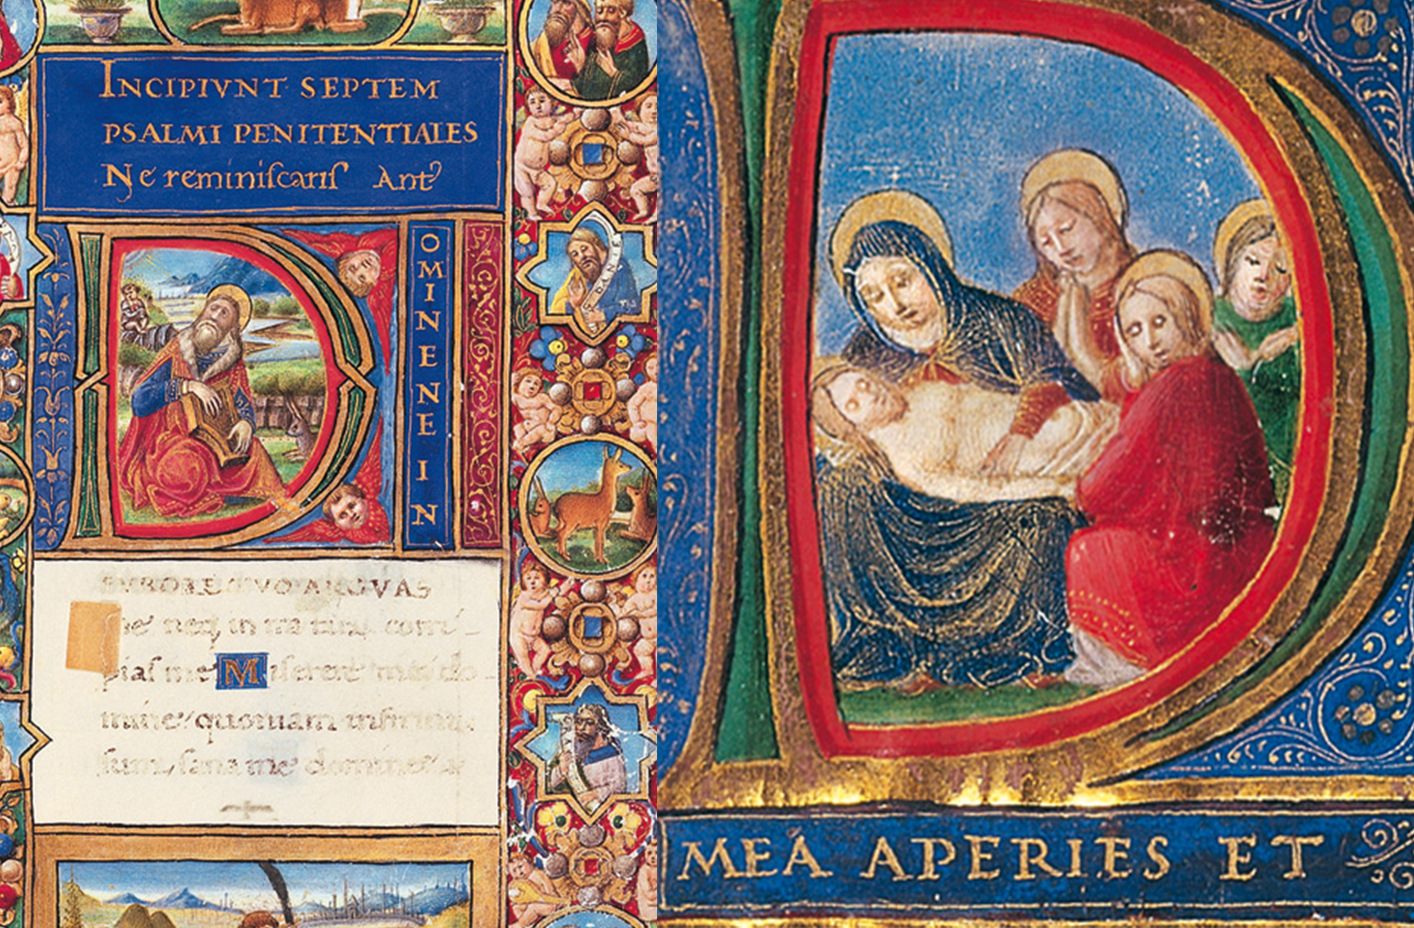 INCIPIVNT SEPTEM
PSALMI PENITENTIALES
Ne reminiſcariſ Ant
D
OMINE NE IN
FVRORE TVO ARGVAS
me neq, in ira tua corri-
piaſ me M iſerere mei do-
mine quoniam infirmuſ
ſum, ſana me domine
MEÁ APERIES ET